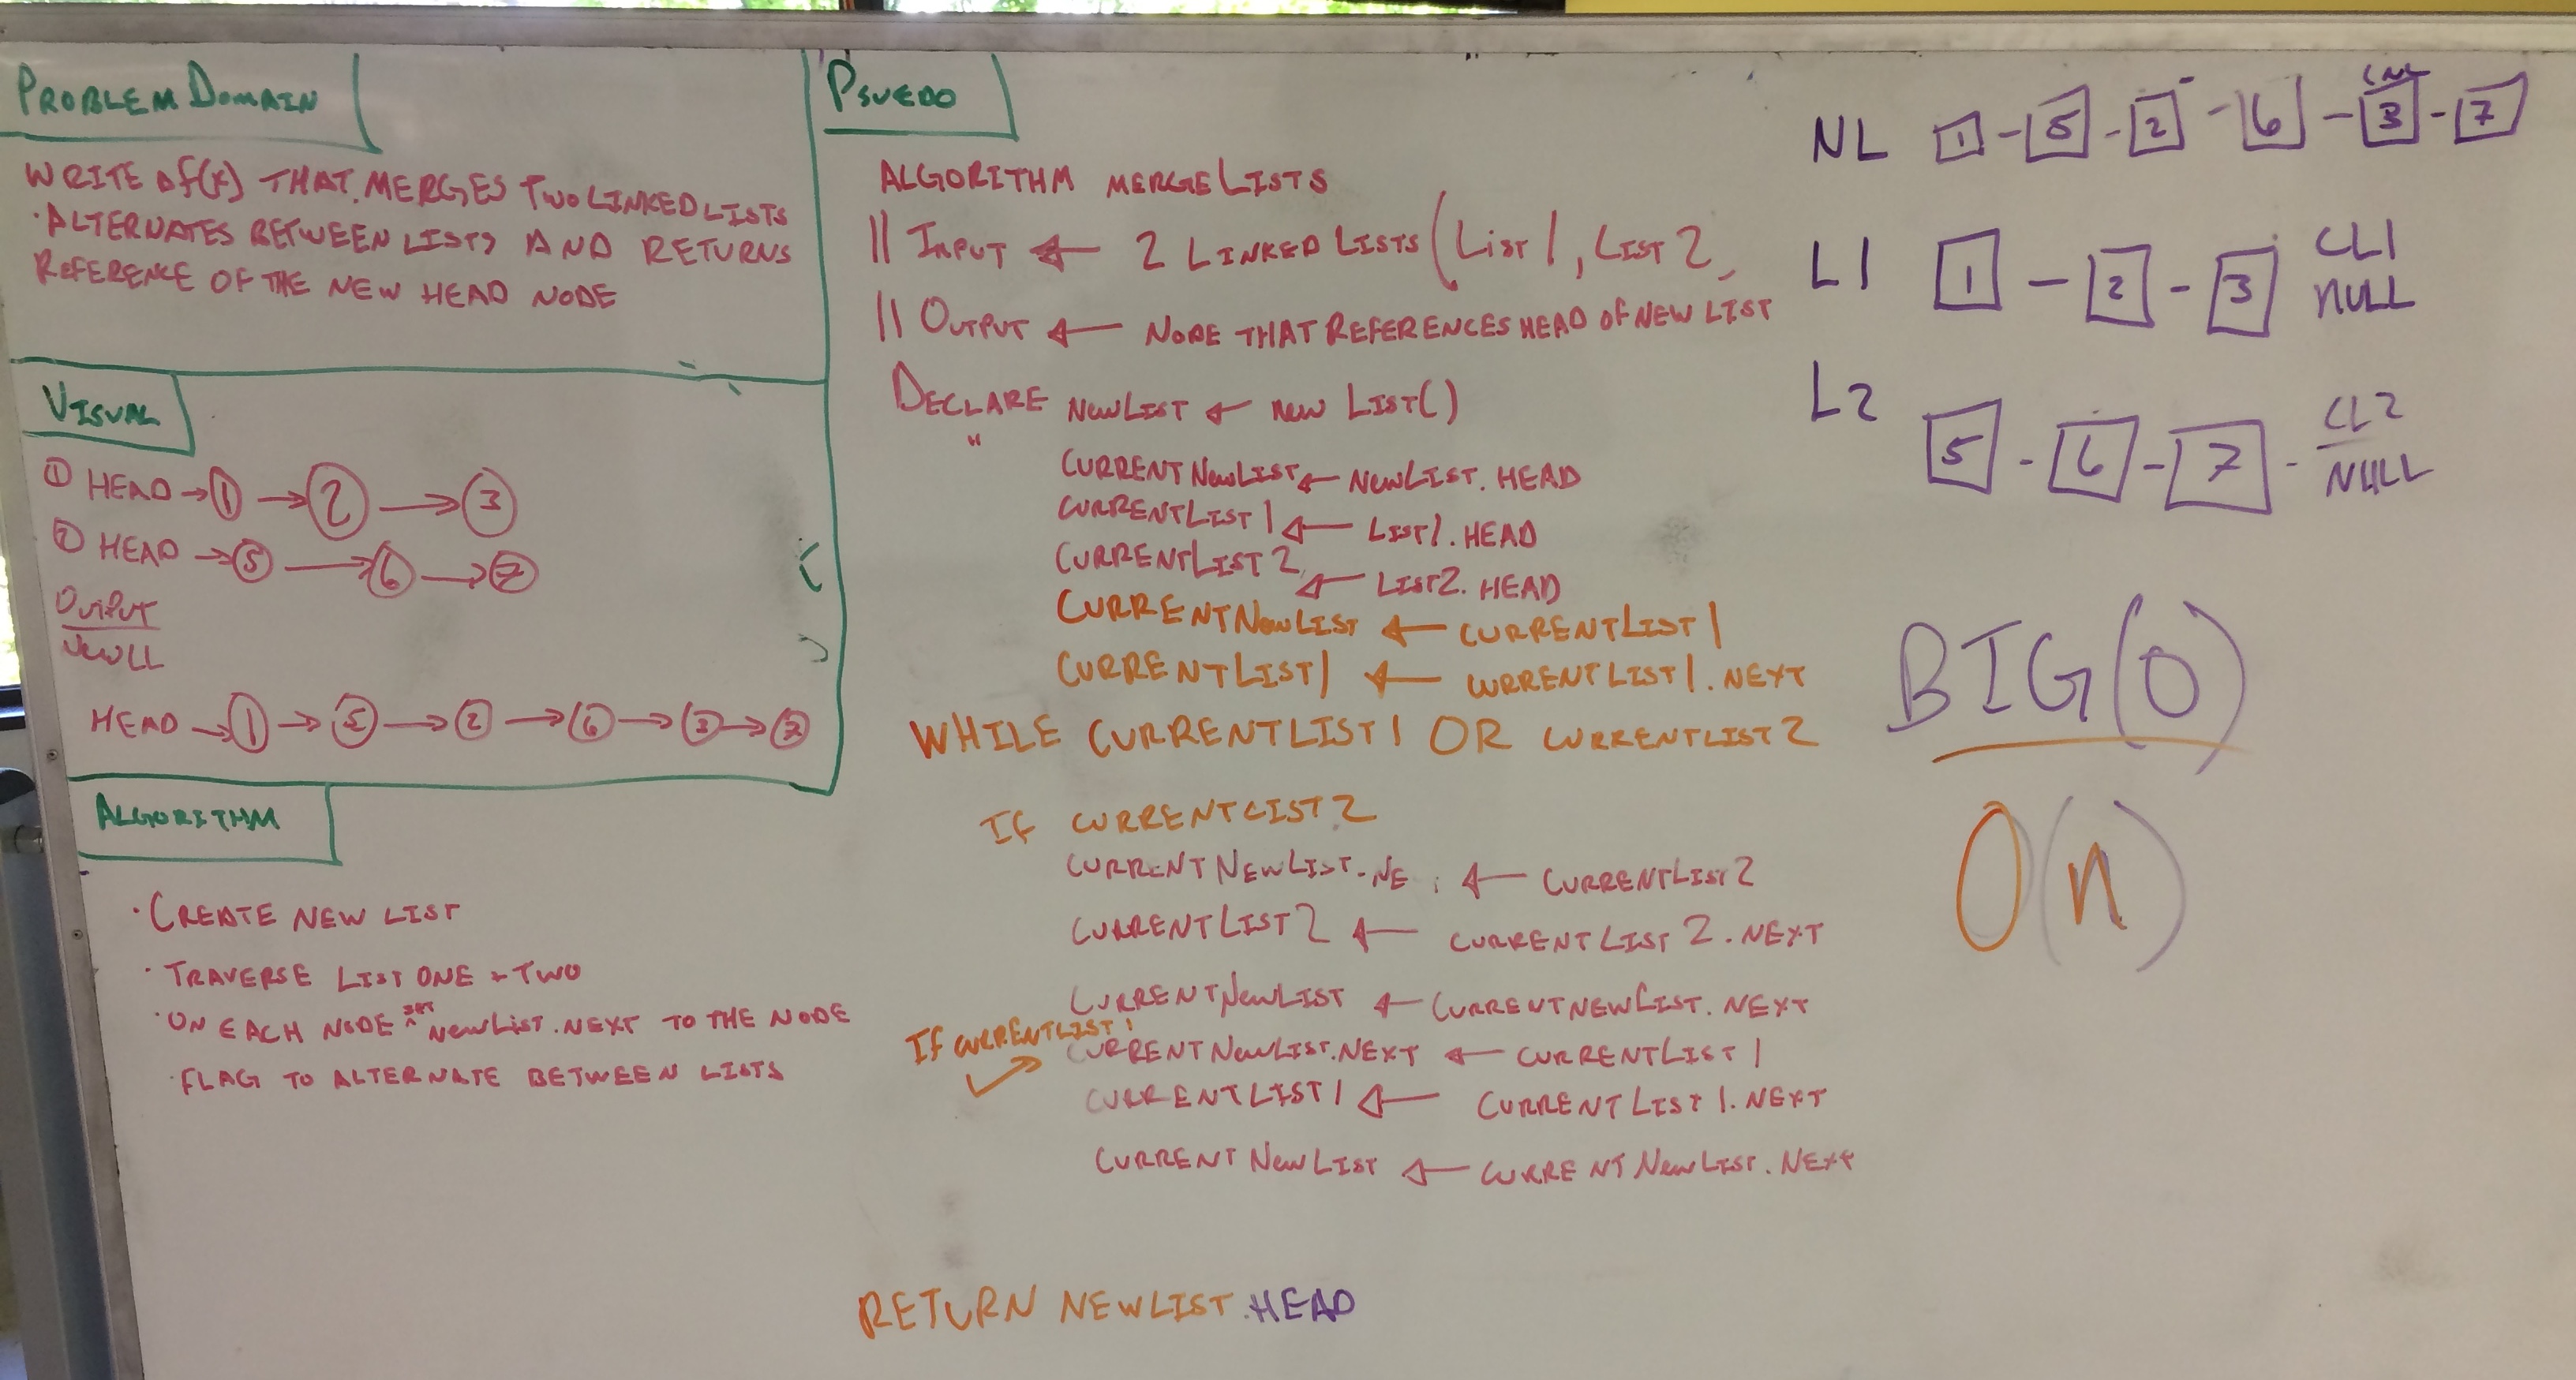 PROBLEM DOMAIN
WRITE A f(x) THAT MERGES TWO LINKED LISTS
· ALTERNATES BETWEEN LISTS AND RETURNS
REFERENCE OF THE NEW HEAD NODE
VISUAL
① HEAD → 1 → 2 → 3
② HEAD → 5 → 6 → 7
OUTPUT
NEWLL
HEAD → 1 → 5 → 2 → 6 → 3 → 7
ALGORITHM
· CREATE NEW LIST
· TRAVERSE LIST ONE + TWO
· ON EACH NODE ^SET NEWLIST.NEXT TO THE NODE
· FLAG TO ALTERNATE BETWEEN LISTS
PSUEDO
ALGORITHM MERGELISTS
// INPUT ← 2 LINKED LISTS (LIST1, LIST2
// OUTPUT ← NODE THAT REFERENCES HEAD OF NEW LIST
DECLARE NEWLIST ← NEW LIST()
"
CURRENTNEWLIST ← NEWLIST.HEAD
CURRENTLIST1 ← LIST1.HEAD
CURRENTLIST2 ← LIST2.HEAD
CURRENTNEWLIST ← CURRENTLIST1
CURRENTLIST1 ← CURRENTLIST1.NEXT
WHILE CURRENTLIST1 OR CURRENTLIST2
IF CURRENTLIST2
CURRENTNEWLIST.NE ← CURRENTLIST2
CURRENTLIST2 ← CURRENTLIST2.NEXT
CURRENTNEWLIST ← CURRENTNEWLIST.NEXT
IF CURRENTLIST1
CURRENTNEWLIST.NEXT ← CURRENTLIST1
CURRENTLIST1 ← CURRENTLIST1.NEXT
CURRENTNEWLIST ← CURRENTNEWLIST.NEXT
RETURN NEWLIST.HEAD
CNL
NL 1 - 5 - 2 - 6 - 3 - 7
L1 1 - 2 - 3 CL1
NULL
L2 5 - 6 - 7 - CL2
NULL
BIG(O)
O(n)